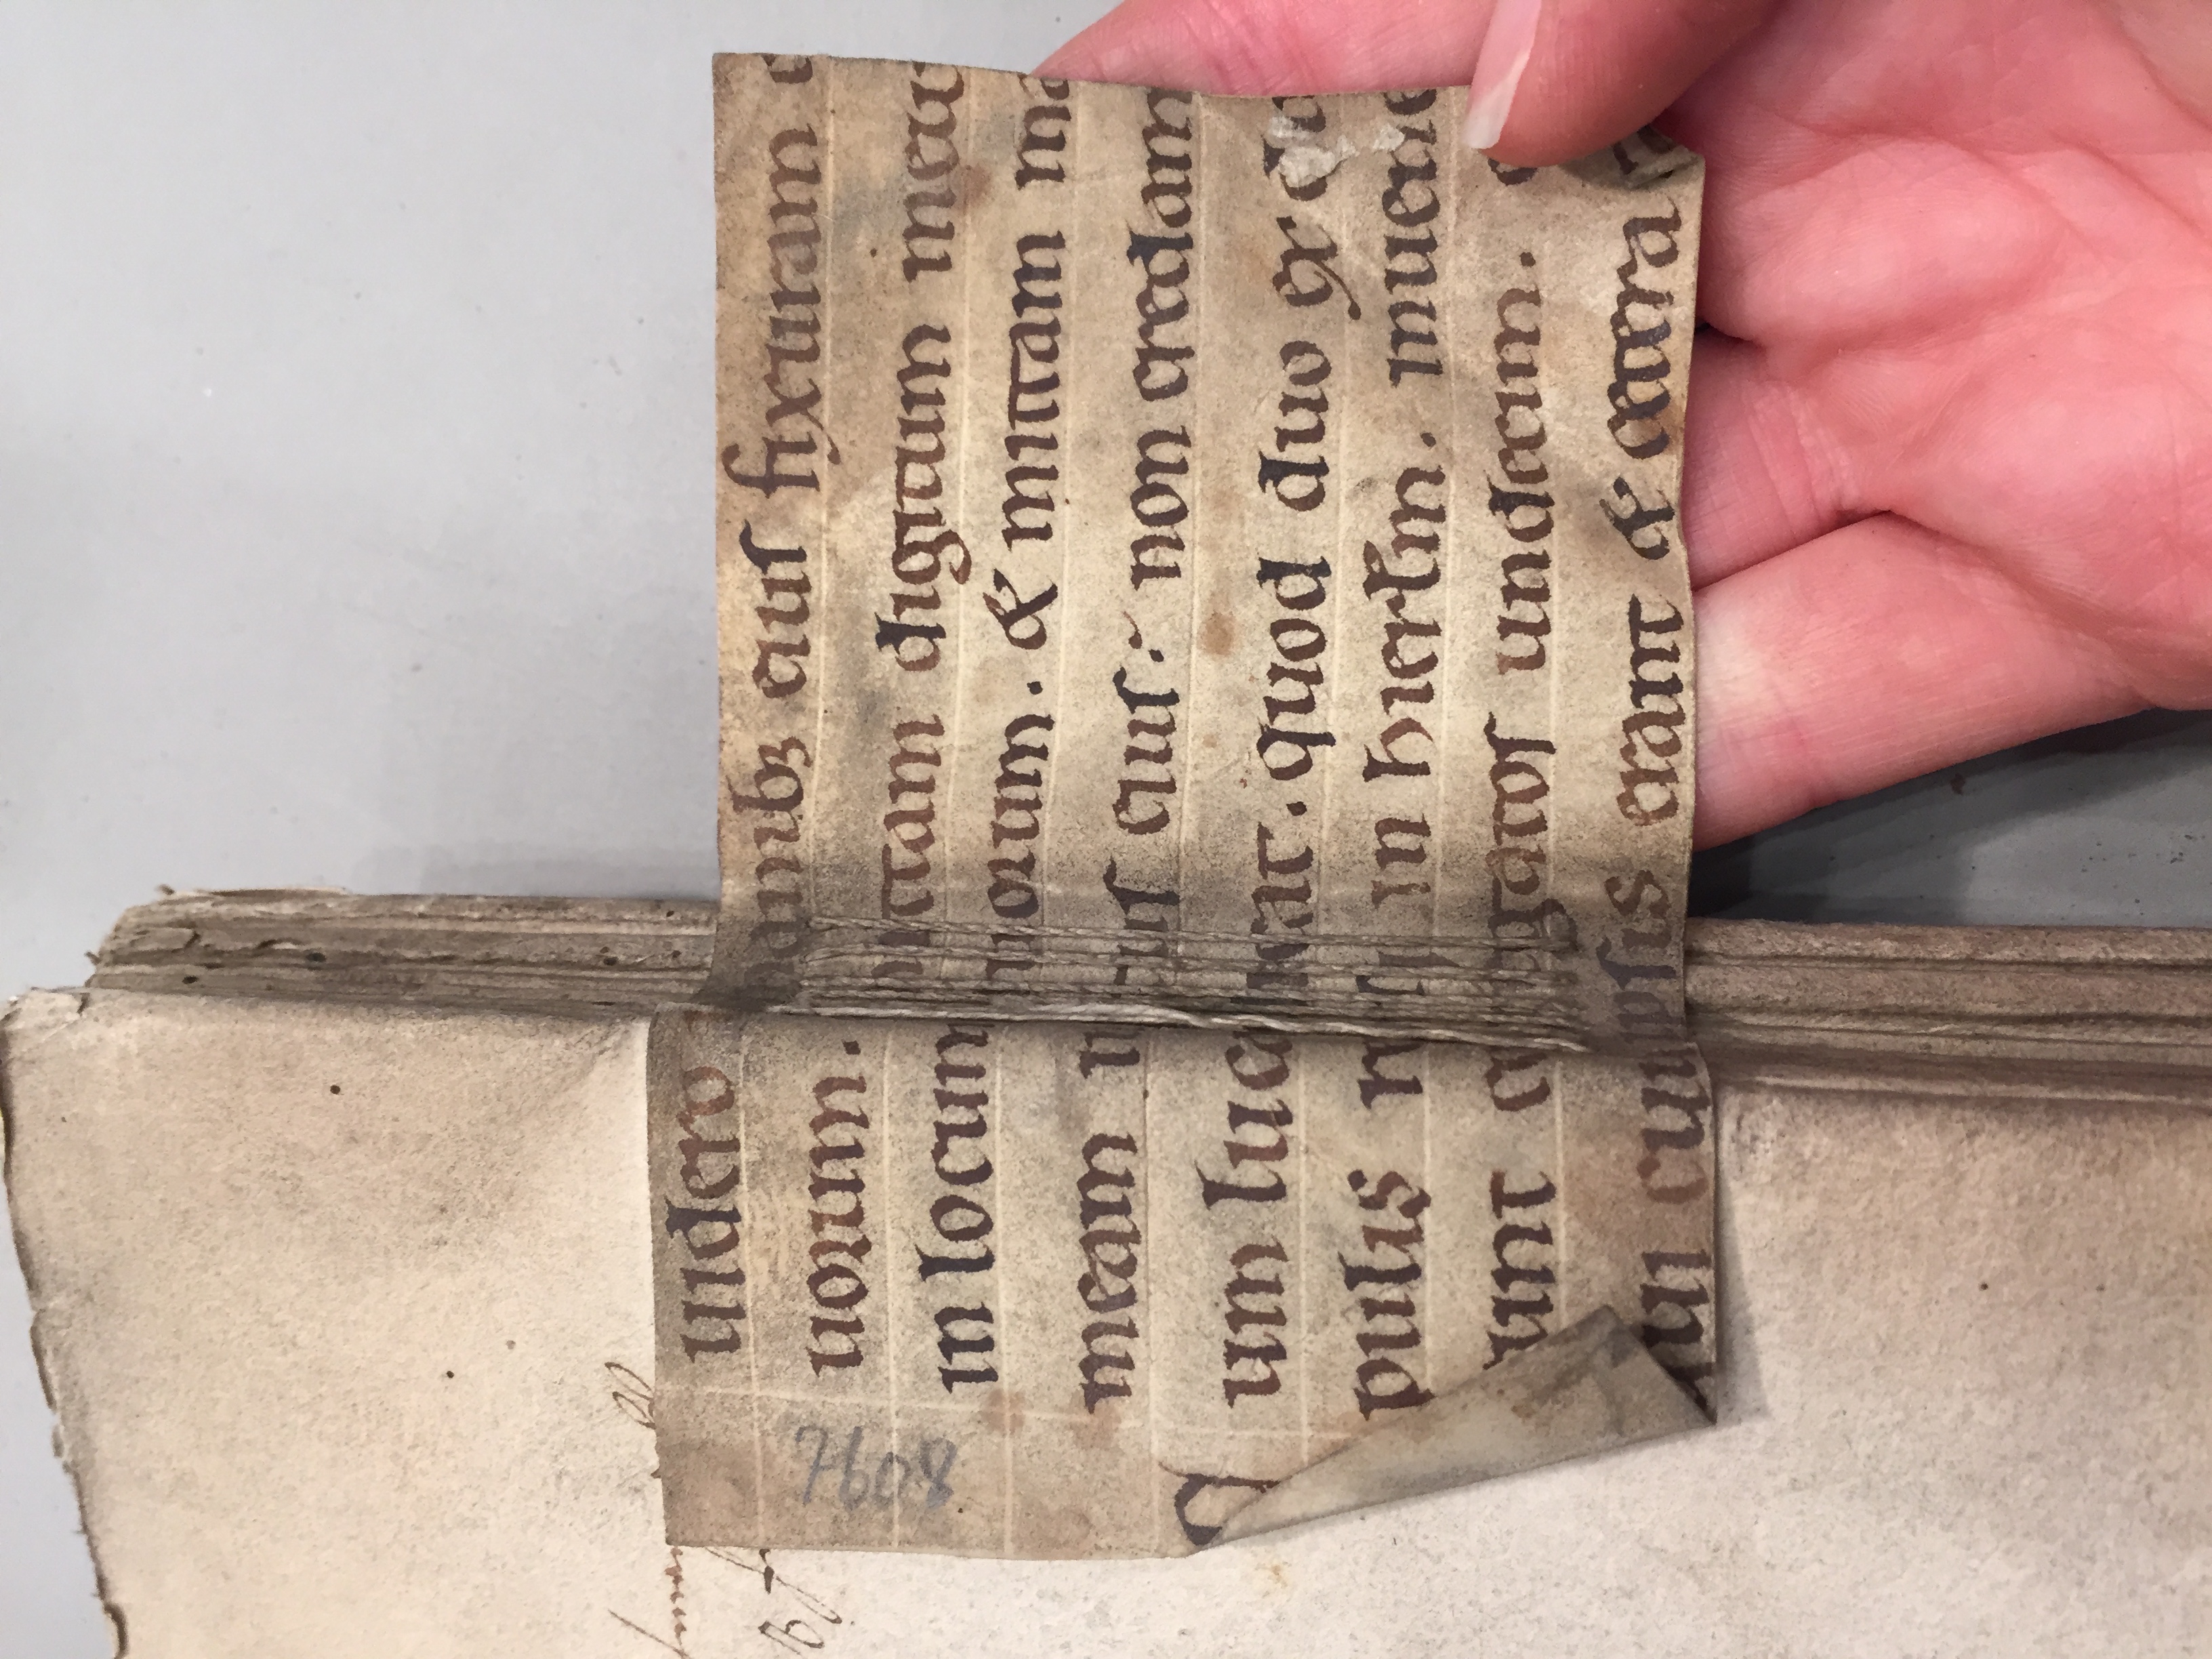 uidero manibꝫ eiuſ fixuram c
uorum. mittam digitum meu
in locum uorum. & mittam ma
meam tuſ eiuſ: non credam
um luc dicat. quod duo ex di
pulis in hierłm. inuene
unt gatoſ undecim.
qui cum ipſis erant & cetera
76098